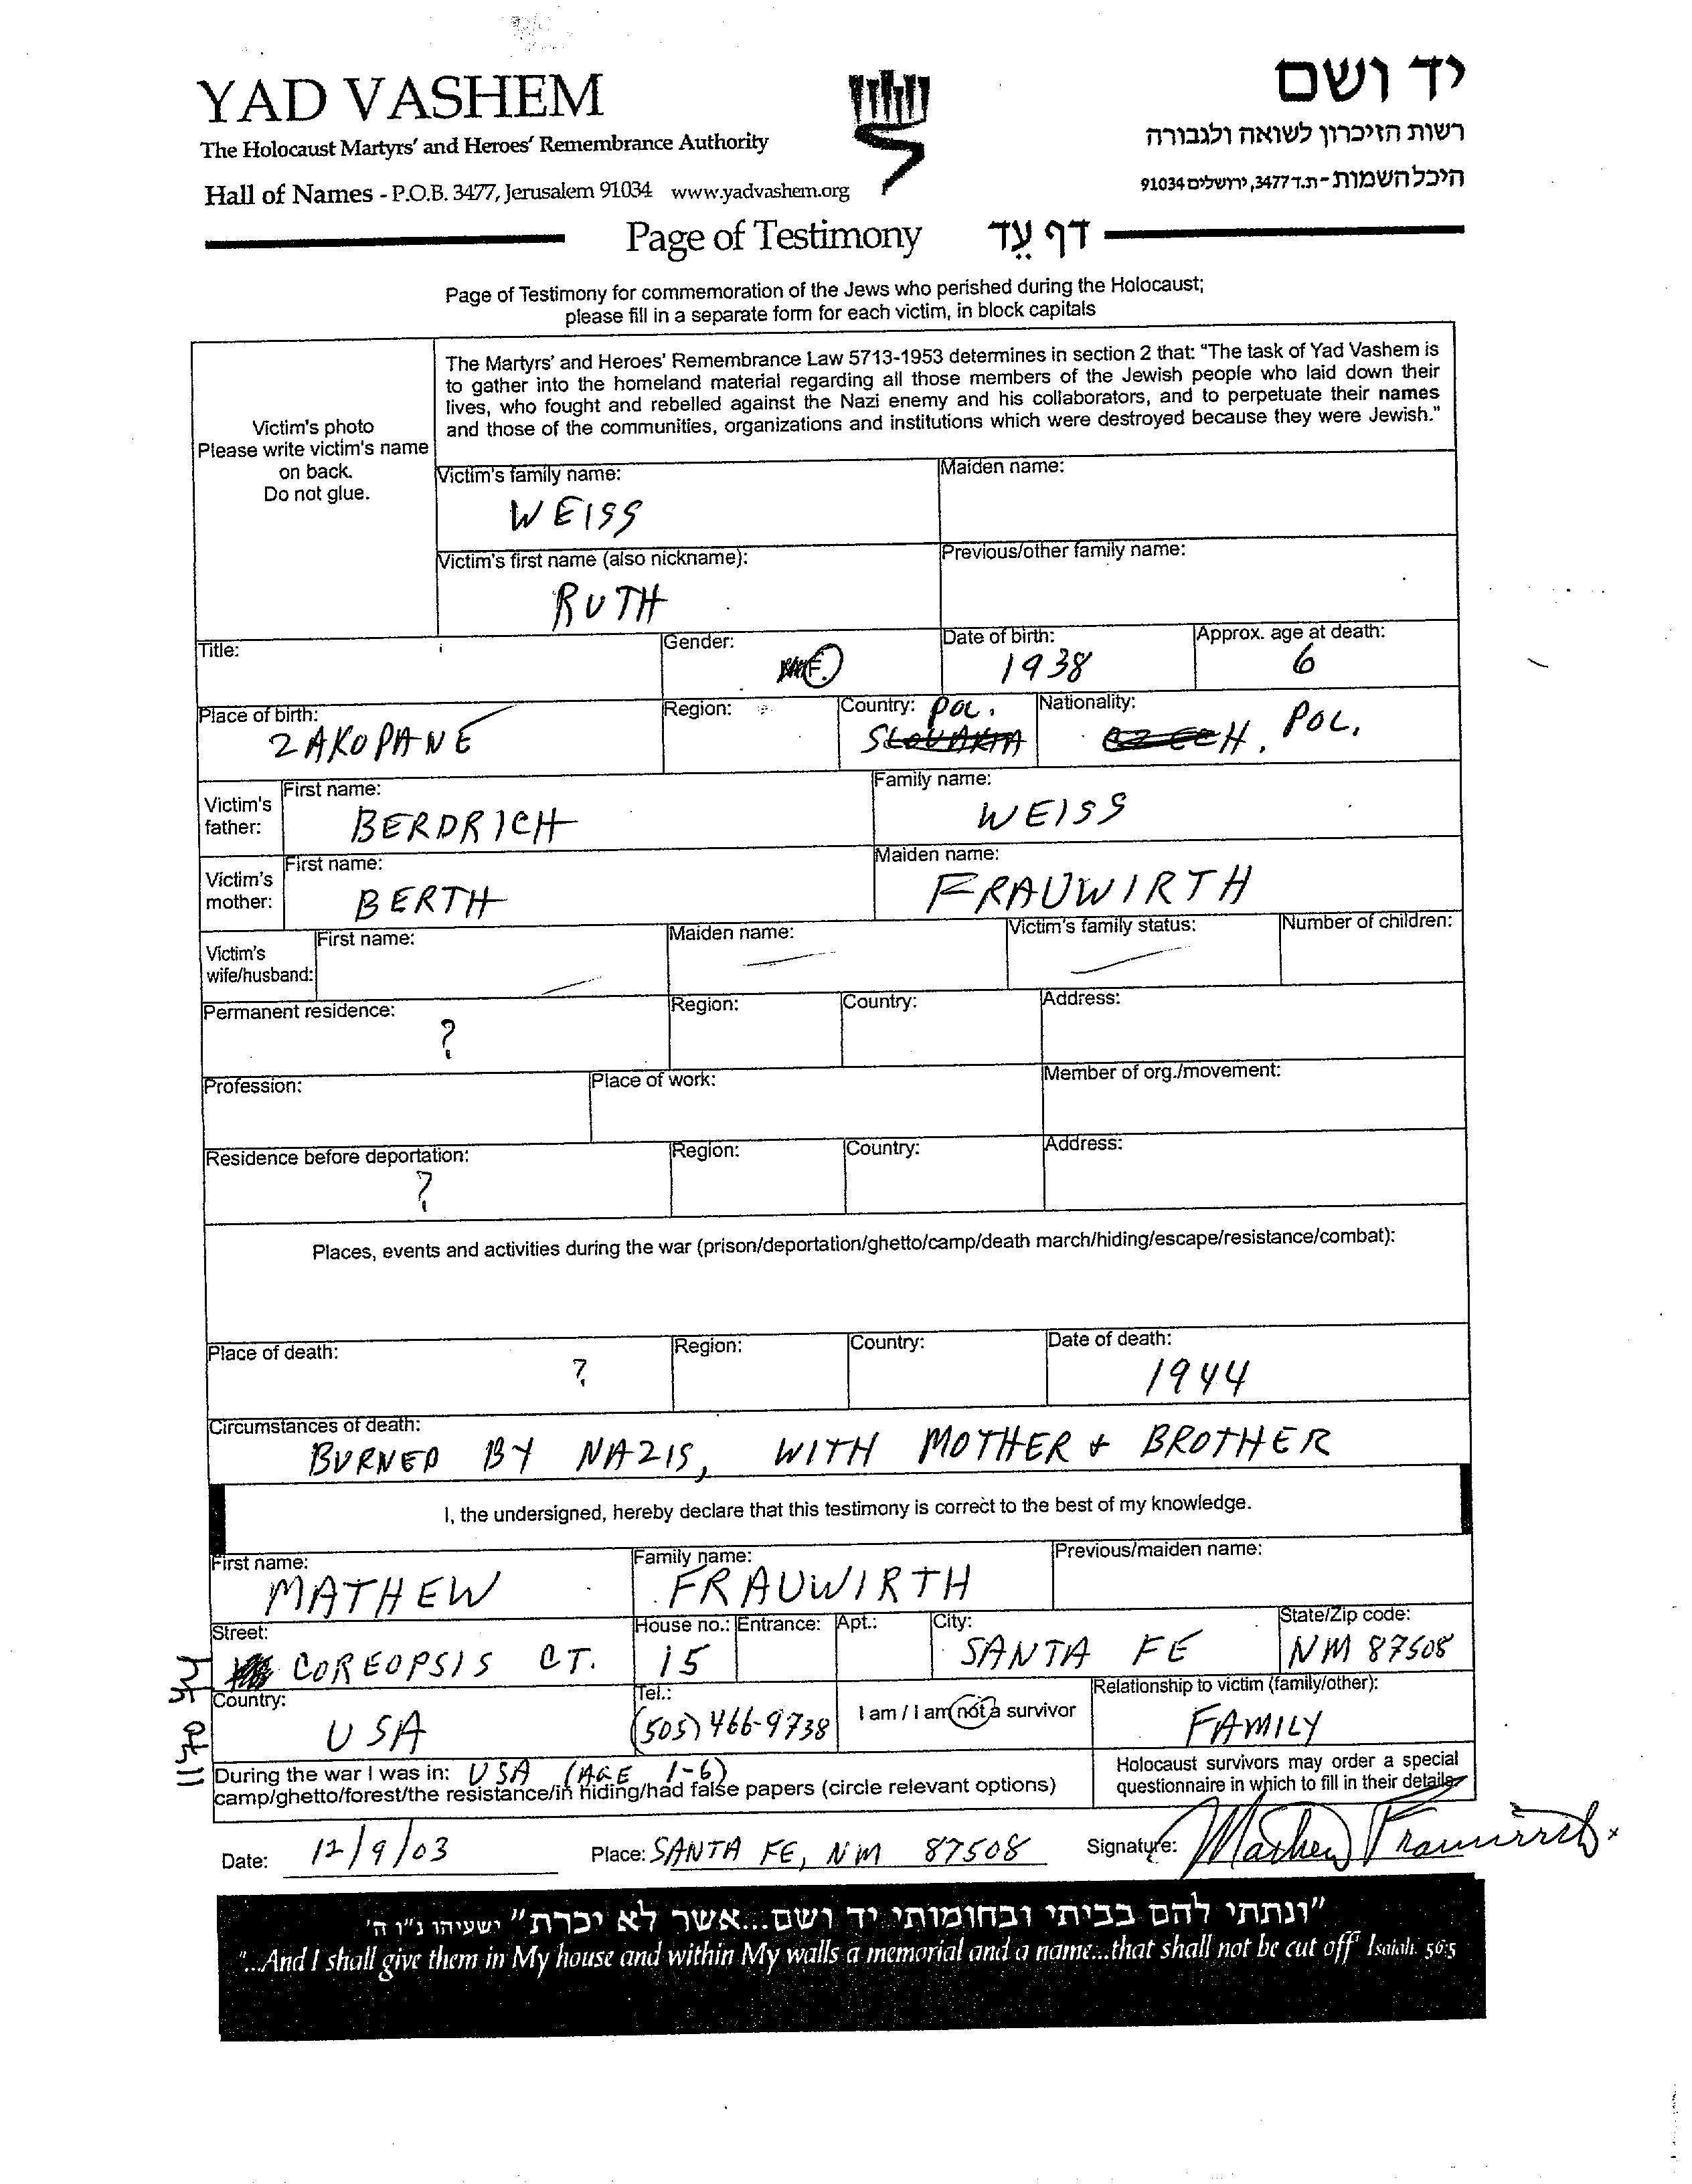 YAD VASHEM
The Holocaust Martyrs' and Heroes' Remembrance Authority
Hall of Names - P.O.B. 3477, Jerusalem 91034 www.yadvashem.org
יד ושם
רשות הזיכרון לשואה ולגבורה
היכל השמות - ת.ד. 3477, ירושלים 91034
Page of Testimony דף עֵד
Page of Testimony for commemoration of the Jews who perished during the Holocaust;
please fill in a separate form for each victim, in block capitals
Victim's photo
Please write victim's name
on back.
Do not glue.
The Martyrs' and Heroes' Remembrance Law 5713-1953 determines in section 2 that: "The task of Yad Vashem is
to gather into the homeland material regarding all those members of the Jewish people who laid down their
lives, who fought and rebelled against the Nazi enemy and his collaborators, and to perpetuate their names
and those of the communities, organizations and institutions which were destroyed because they were Jewish."
Victim's family name: Maiden name:
WEISS
Victim's first name (also nickname): Previous/other family name:
RUTH
Title: Gender: Date of birth: Approx. age at death:
F. 1938 6
Place of birth: Region: Country: POL. Nationality:
ZAKOPANE SLOVAKIA CZECH. POL.
Victim's father: First name: Family name:
BERDRICH WEISS
Victim's mother: First name: Maiden name:
BERTH FRAUWIRTH
Victim's wife/husband: First name: Maiden name: Victim's family status: Number of children:
Permanent residence: Region: Country: Address:
?
Profession: Place of work: Member of org./movement:
Residence before deportation: Region: Country: Address:
?
Places, events and activities during the war (prison/deportation/ghetto/camp/death march/hiding/escape/resistance/combat):
Place of death: Region: Country: Date of death:
? 1944
Circumstances of death:
BURNED BY NAZIS, WITH MOTHER + BROTHER
I, the undersigned, hereby declare that this testimony is correct to the best of my knowledge.
First name: Family name: Previous/maiden name:
MATHEW FRAUWIRTH
Street: House no.: Entrance: Apt.: City: State/Zip code:
COREOPSIS CT. 15 SANTA FE NM 87508
Country: Tel.: I am / I am not a survivor Relationship to victim (family/other):
USA (505) 466-9738 FAMILY
During the war I was in: USA (AGE 1-6)
camp/ghetto/forest/the resistance/in hiding/had false papers (circle relevant options)
Holocaust survivors may order a special
questionnaire in which to fill in their details
Date: 12/9/03 Place: SANTA FE, NM 87508 Signature: Mathew Frauwirth
"ונתתי להם בביתי ובחומותי יד ושם...אשר לא יכרת" ישעיהו נ"ו ה'
"...And I shall give them in My house and within My walls a memorial and a name...that shall not be cut off" Isaiah 56:5